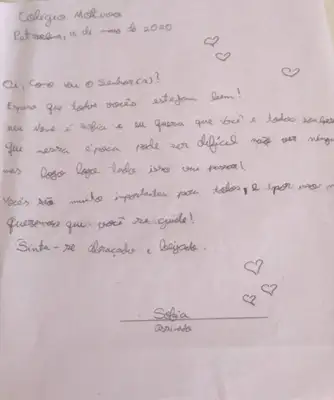 Colégio Motivo
Petrolina, 11 de maio de 2020
Oi, Como vai o Senhor(a)?
Espero que todos vocês estejam bem!
meu nome é Sofia e eu queria que você e todos
que nessa época pode ser difícil não ver
mas logo logo tudo isso vai passar!
Vocês são muito importantes para todos, e por
queremos que você se cuide!
Sinta-se abraçado e beijado.
Sofia